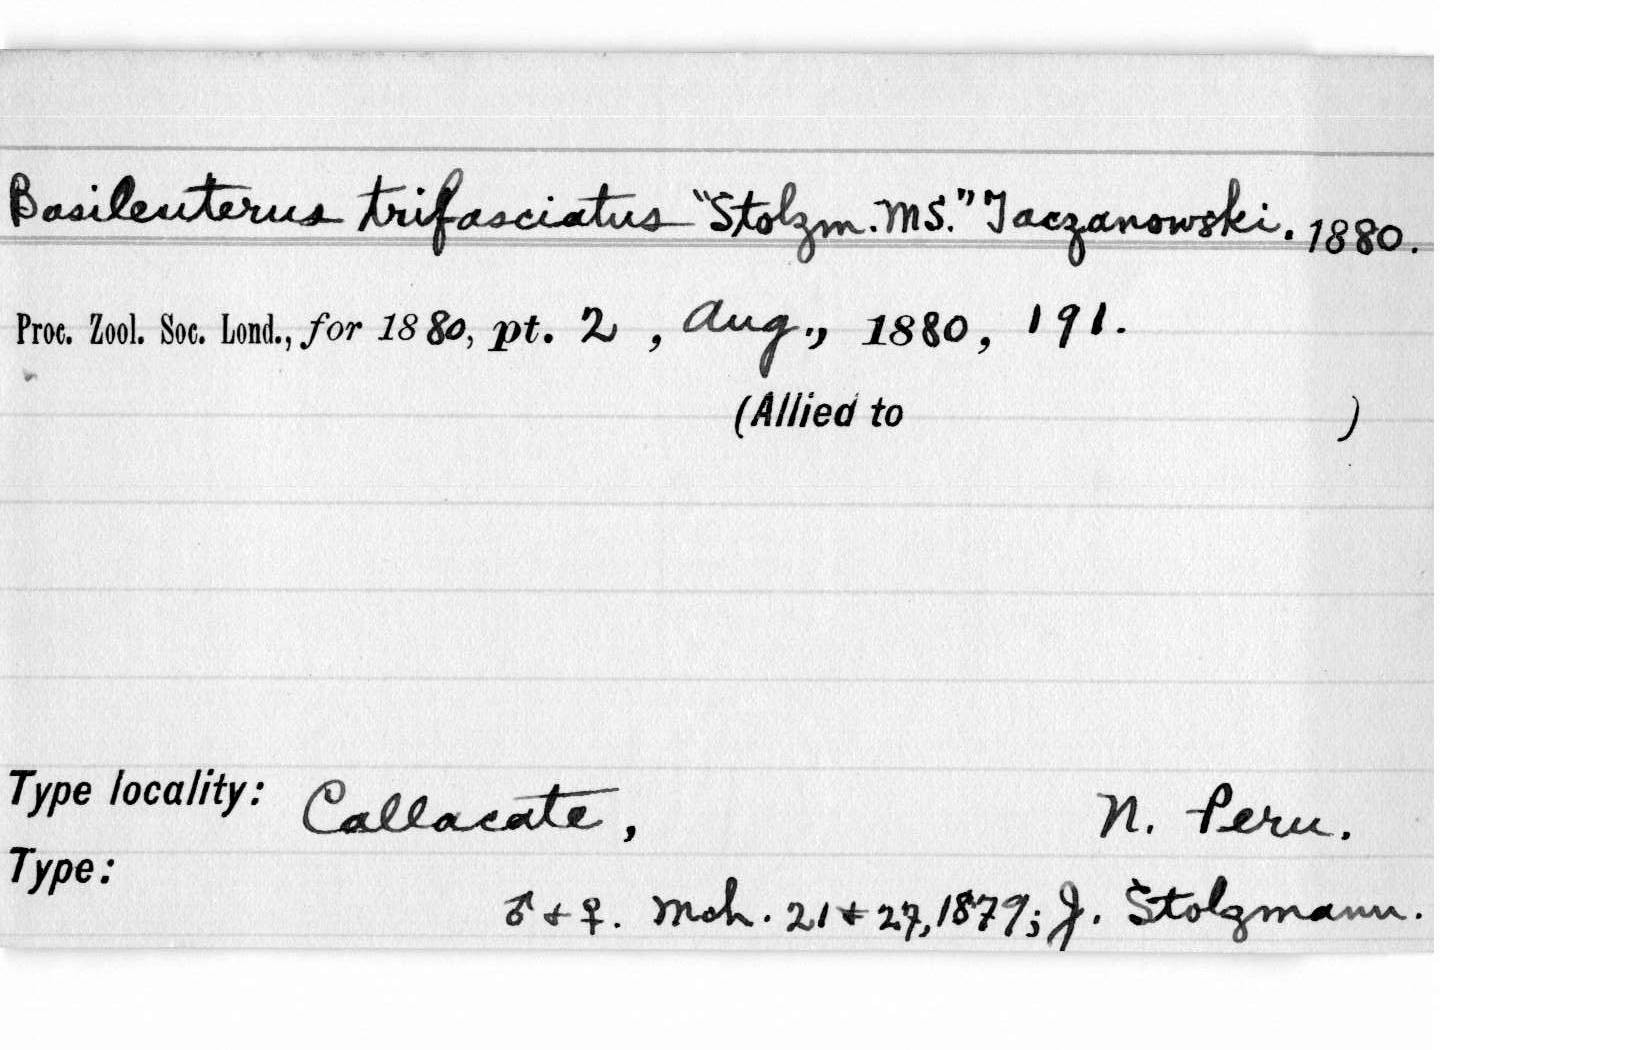 Basileuterus trifasciatus "Stolzm. MS." Taczanowski. 1880.
Proc. Zool. Soc. Lond., for 1880, pt. 2, Aug., 1880, 191.
(Allied to )
Type locality: Callacate, N. Peru.
Type:
♂ + ♀. Mch. 21 + 27, 1879; J. Stolzmann.